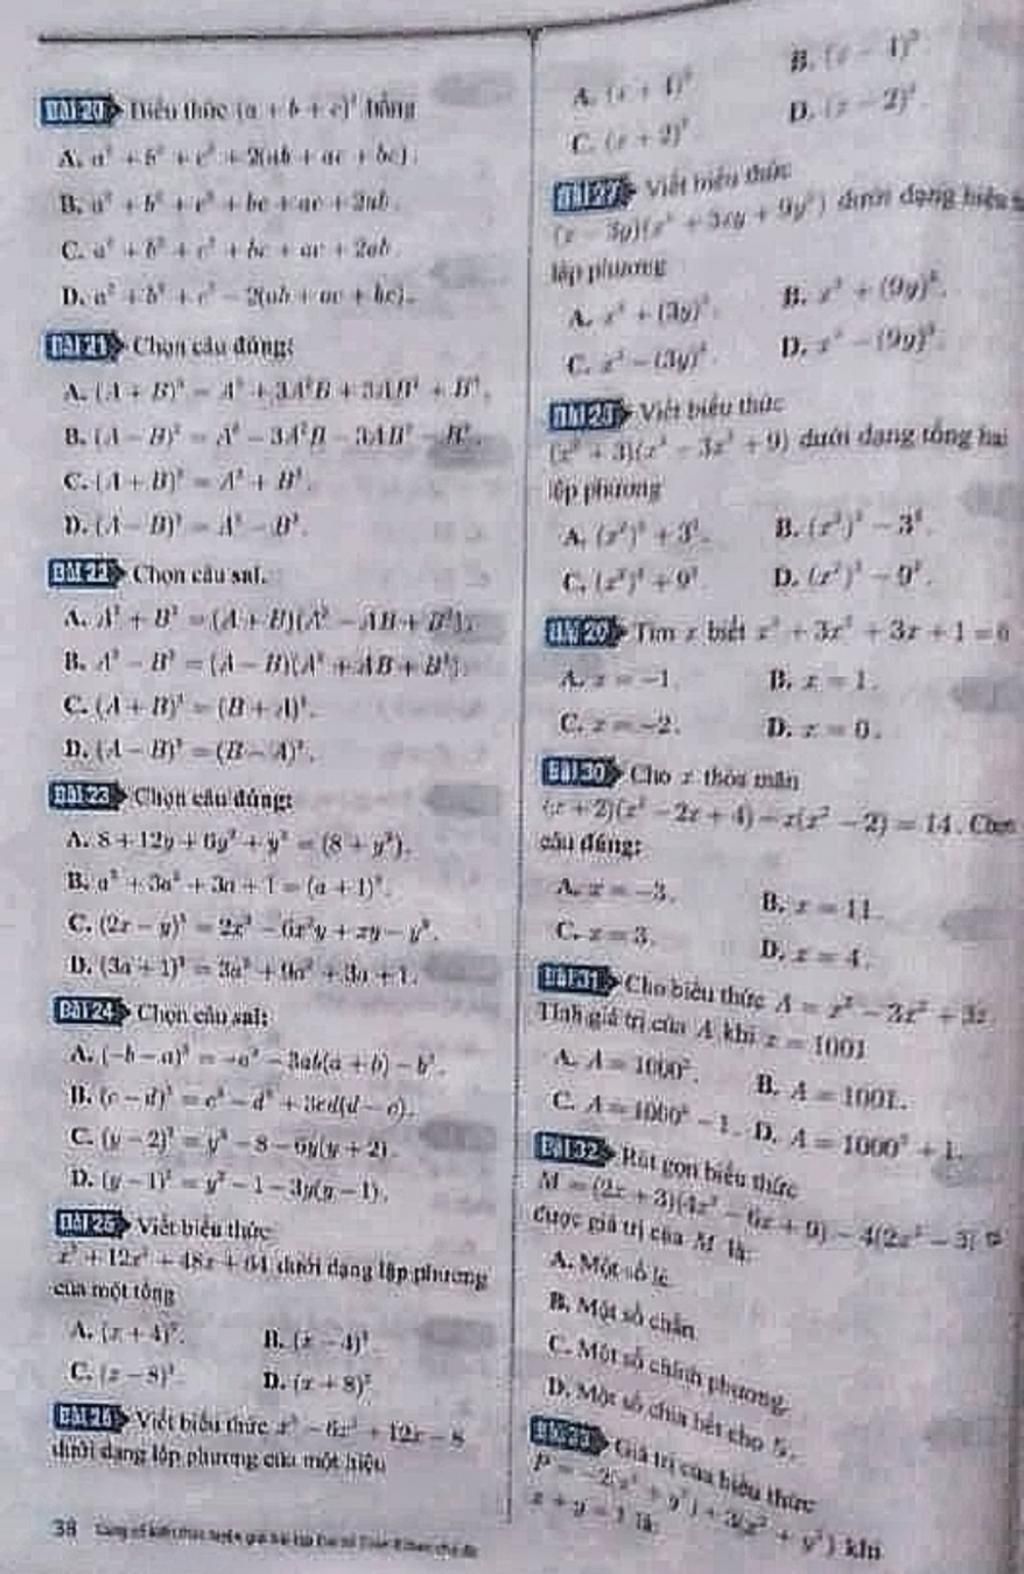 Bài 20 Biểu thức (a + b + c)² bằng
A. a² + b² + c² + 2(ab + ac + bc).
B. a² + b² + c² + bc + ac + 2ab.
C. a² + b² + c² + bc + ac + 2ab.
D. a² + b² + c² − 2(ab + ac + bc).
Bài 21 Chọn câu đúng:
A. (A + B)³ = A³ + 3A²B + 3AB² + B³.
B. (A − B)³ = A³ − 3A²B − 3AB² − B³.
C. (A + B)³ = A³ + B³.
D. (A − B)³ = A³ − B³.
Bài 22 Chọn câu sai.
A. A³ + B³ = (A + B)(A² − AB + B²).
B. A³ − B³ = (A − B)(A² + AB + B²).
C. (A + B)³ = (B + A)³.
D. (A − B)³ = (B − A)³.
Bài 23 Chọn câu đúng:
A. 8 + 12y + 6y² + y³ = (8 + y³).
B. a³ + 3a² + 3a + 1 = (a + 1)³.
C. (2x − y)³ = 2x³ − 6x²y + xy − y³.
D. (3a + 1)³ = 3a³ + 9a² + 3a + 1.
Bài 24 Chọn câu sai:
A. (−b − a)³ = −a³ − 3ab(a + b) − b³.
B. (c − d)³ = c³ − d³ + 3cd(d − c).
C. (y − 2)³ = y³ − 8 − 6y(y + 2).
D. (y − 1)³ = y³ − 1 − 3y(y − 1).
Bài 25 Viết biểu thức
x³ + 12x² + 48x + 64 dưới dạng lập phương
của một tổng
A. (x + 4)³. B. (x − 4)³
C. (x − 8)³ D. (x + 8)³
Bài 26 Viết biểu thức x³ − 6x² + 12x − 8
dưới dạng lập phương của một hiệu
38
A. (x + 4)³ B. (x − 4)³
C. (x + 2)³ D. (x − 2)³
Bài 27 Viết biểu thức
(x − 3y)(x² + 3xy + 9y²) dưới dạng hiệu
lập phương
A. x³ + (3y)³. B. x³ + (9y)³.
C. x³ − (3y)³. D. x³ − (9y)³.
Bài 28 Viết biểu thức
(x² + 3)(x⁴ − 3x² + 9) dưới dạng tổng hai
lập phương
A. (x²)³ + 3³. B. (x²)³ − 3³.
C. (x²)³ + 9³ D. (x²)³ − 9³.
Bài 29 Tìm x biết x³ + 3x² + 3x + 1 = 0
A. x = −1. B. x = 1.
C. x = −2. D. x = 0.
Bài 30 Cho x thỏa mãn
(x + 2)(x² − 2x + 4) − x(x² − 2) = 14. Chọn
câu đúng:
A. x = −3. B. x = 11.
C. x = 3. D. x = 4.
Bài 31 Cho biểu thức A = x³ − 3x² + 3x
Tính giá trị của A khi x = 1001
A. A = 1000³. B. A = 1001.
C. A = 1000³ − 1. D. A = 1000³ + 1.
Bài 32 Rút gọn biểu thức
M = (2x + 3)(4x² − 6x + 9) − 4(2x³ − 3) ta
được giá trị của M là:
A. Một số lẻ
B. Một số chẵn
C. Một số chính phương.
D. Một số chia hết cho 5.
Bài 33 Giá trị của biểu thức
P = −2(x³ + y³) + 3(x² + y²) khi
x + y = 1 là: